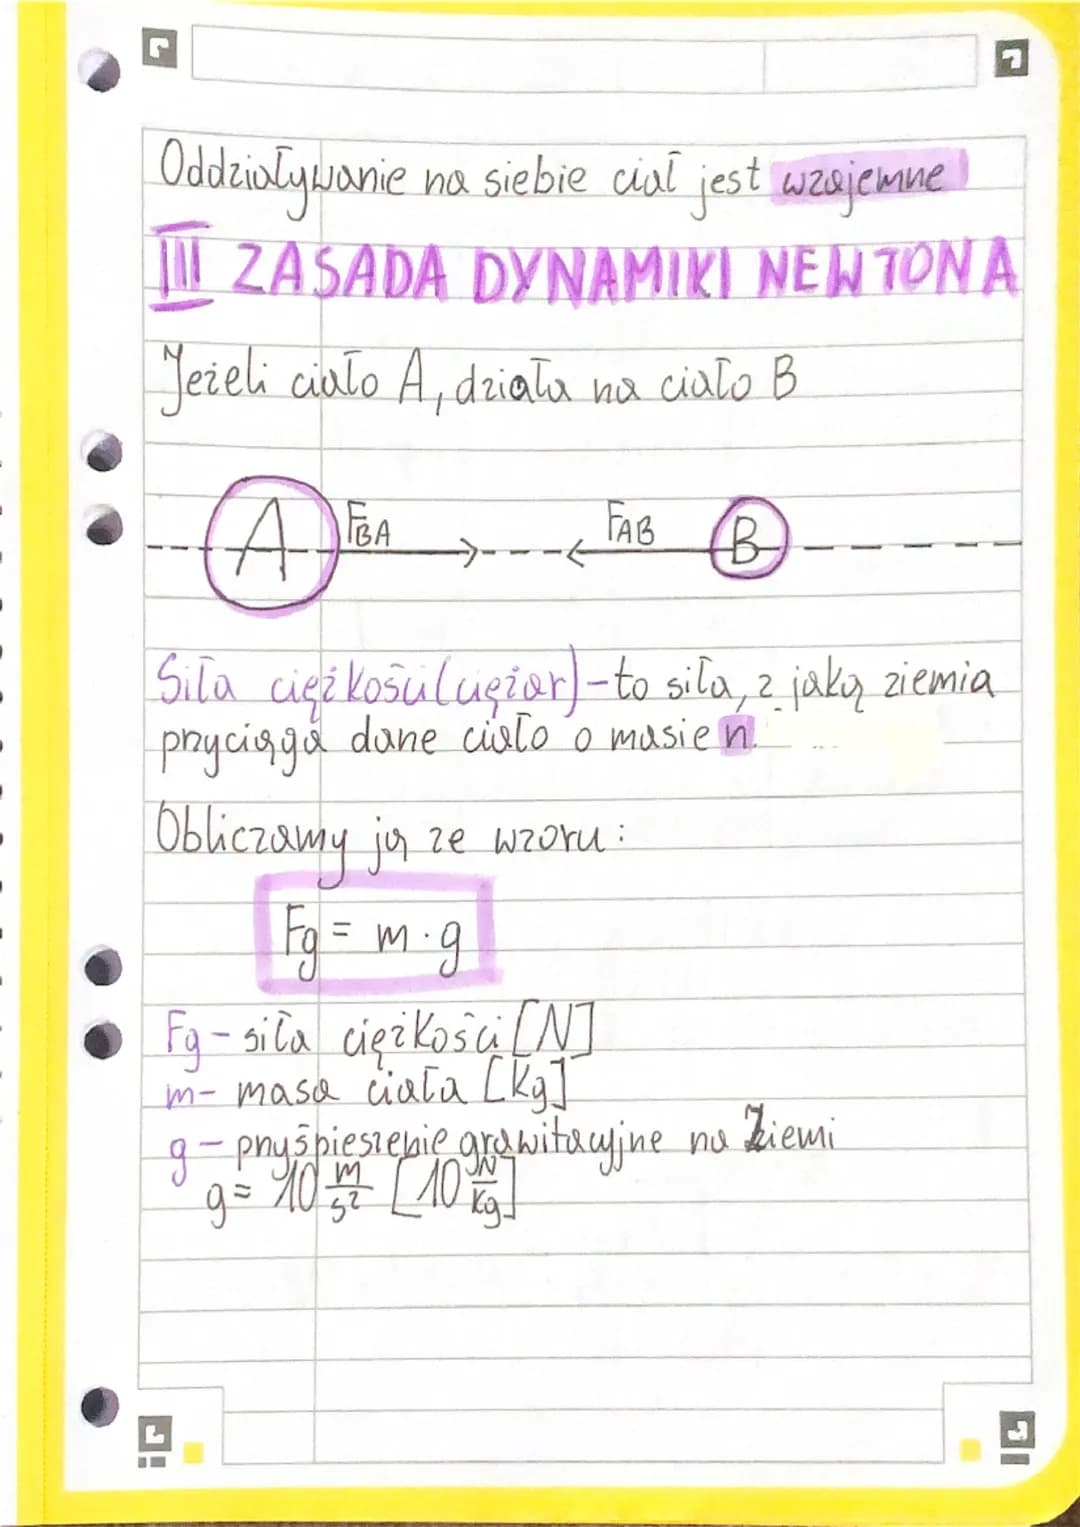 Oddziaływanie na siebie ciał jest wzajemne
III ZASADA DYNAMIKI NEWTONA
Jeżeli ciało A, działa na ciało B
A FBA FAB B
Siła ciężkości (ciężar) - to siła, z jaką ziemia
przyciąga dane ciało o masie n.
Obliczamy ją ze wzoru:
Fg = m · g
Fg - siła ciężkości [N]
m - masa ciała [kg]
g - pryśpieszenie grawitacyjne na Ziemi
g = 10 m/s² [10 N/kg]